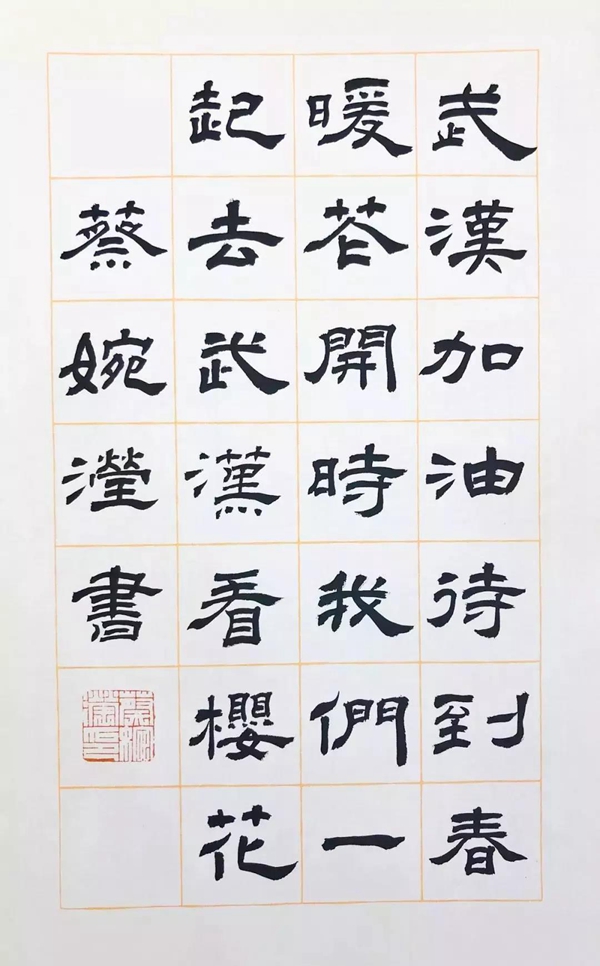 武漢加油待到春
暖花開時我們一
起去武漢看櫻花
蔡婉瀅書
蔡婉瀅印